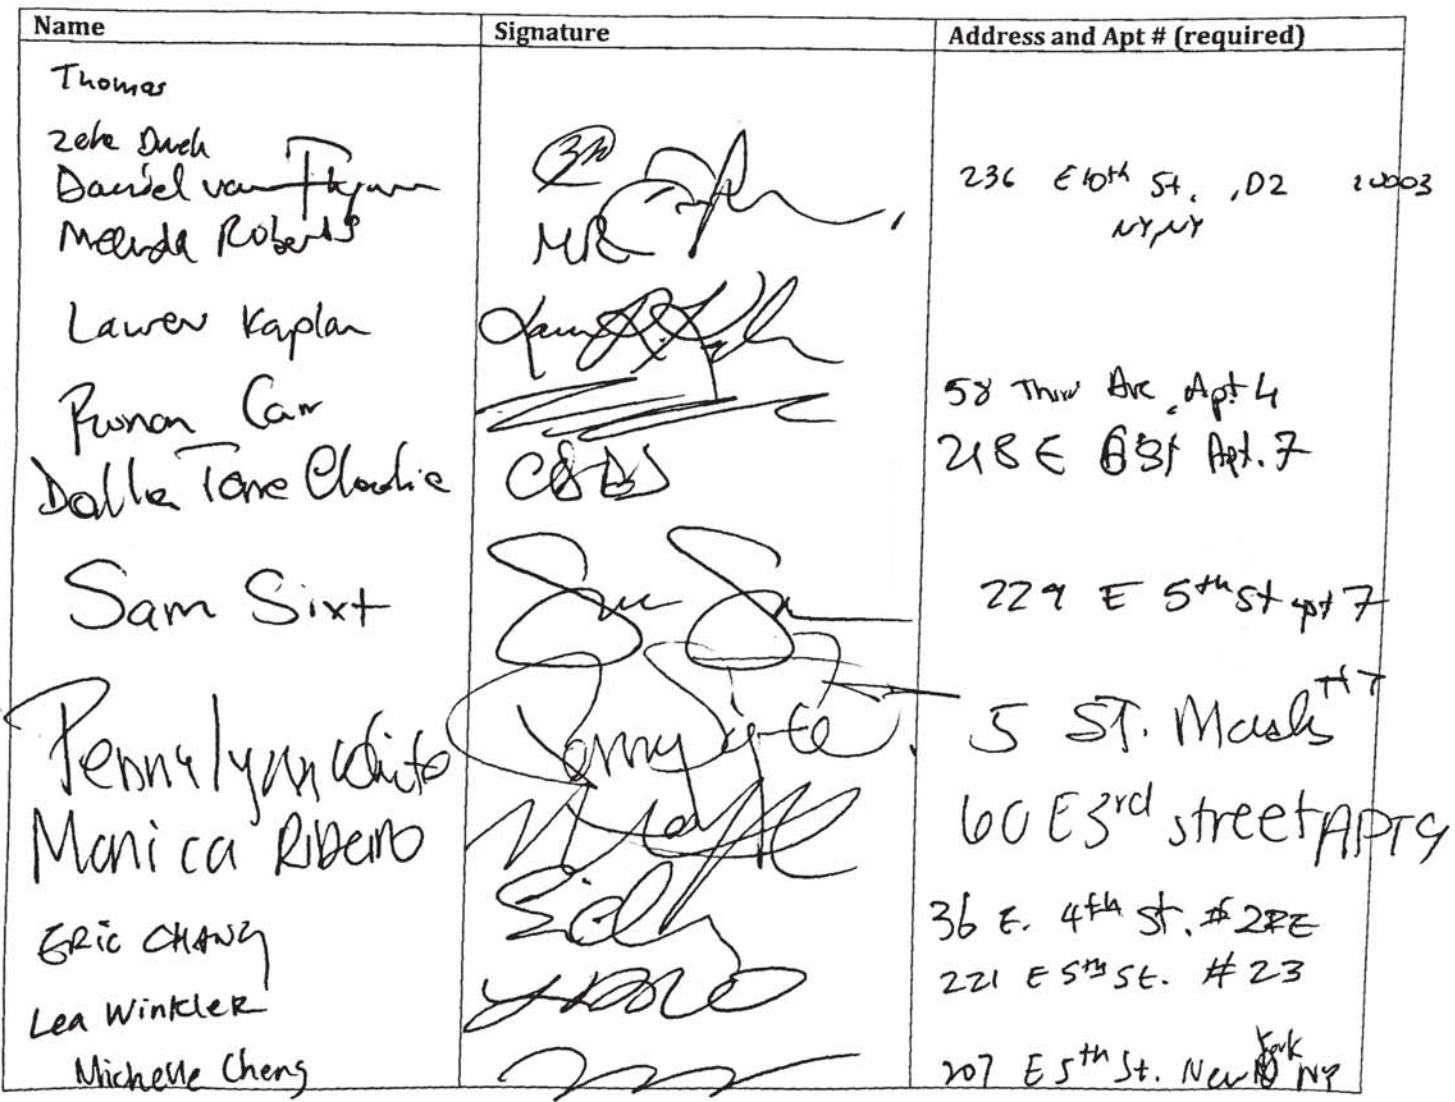 Name Signature Address and Apt # (required)
Thomas
Zeke
Daniel van
236 E 10th St., D2 10003
NY, NY
Melinda Roberts MR
Lauren Kaplan
Ronan Carr
58 Third Ave, Apt 4
Dalla Torre Claudia
218 E Apt. 7
Sam Sixt
229 E 5th St apt 7
Pennylynn White
5 ST. Marks #7
Monica Ribeiro
60 E 3rd street APT 9
ERic CHANG
36 E. 4th St.
Lea Winkler
221 E 5th St. #23
Michelle Cheng
207 E 5th St. New York NY